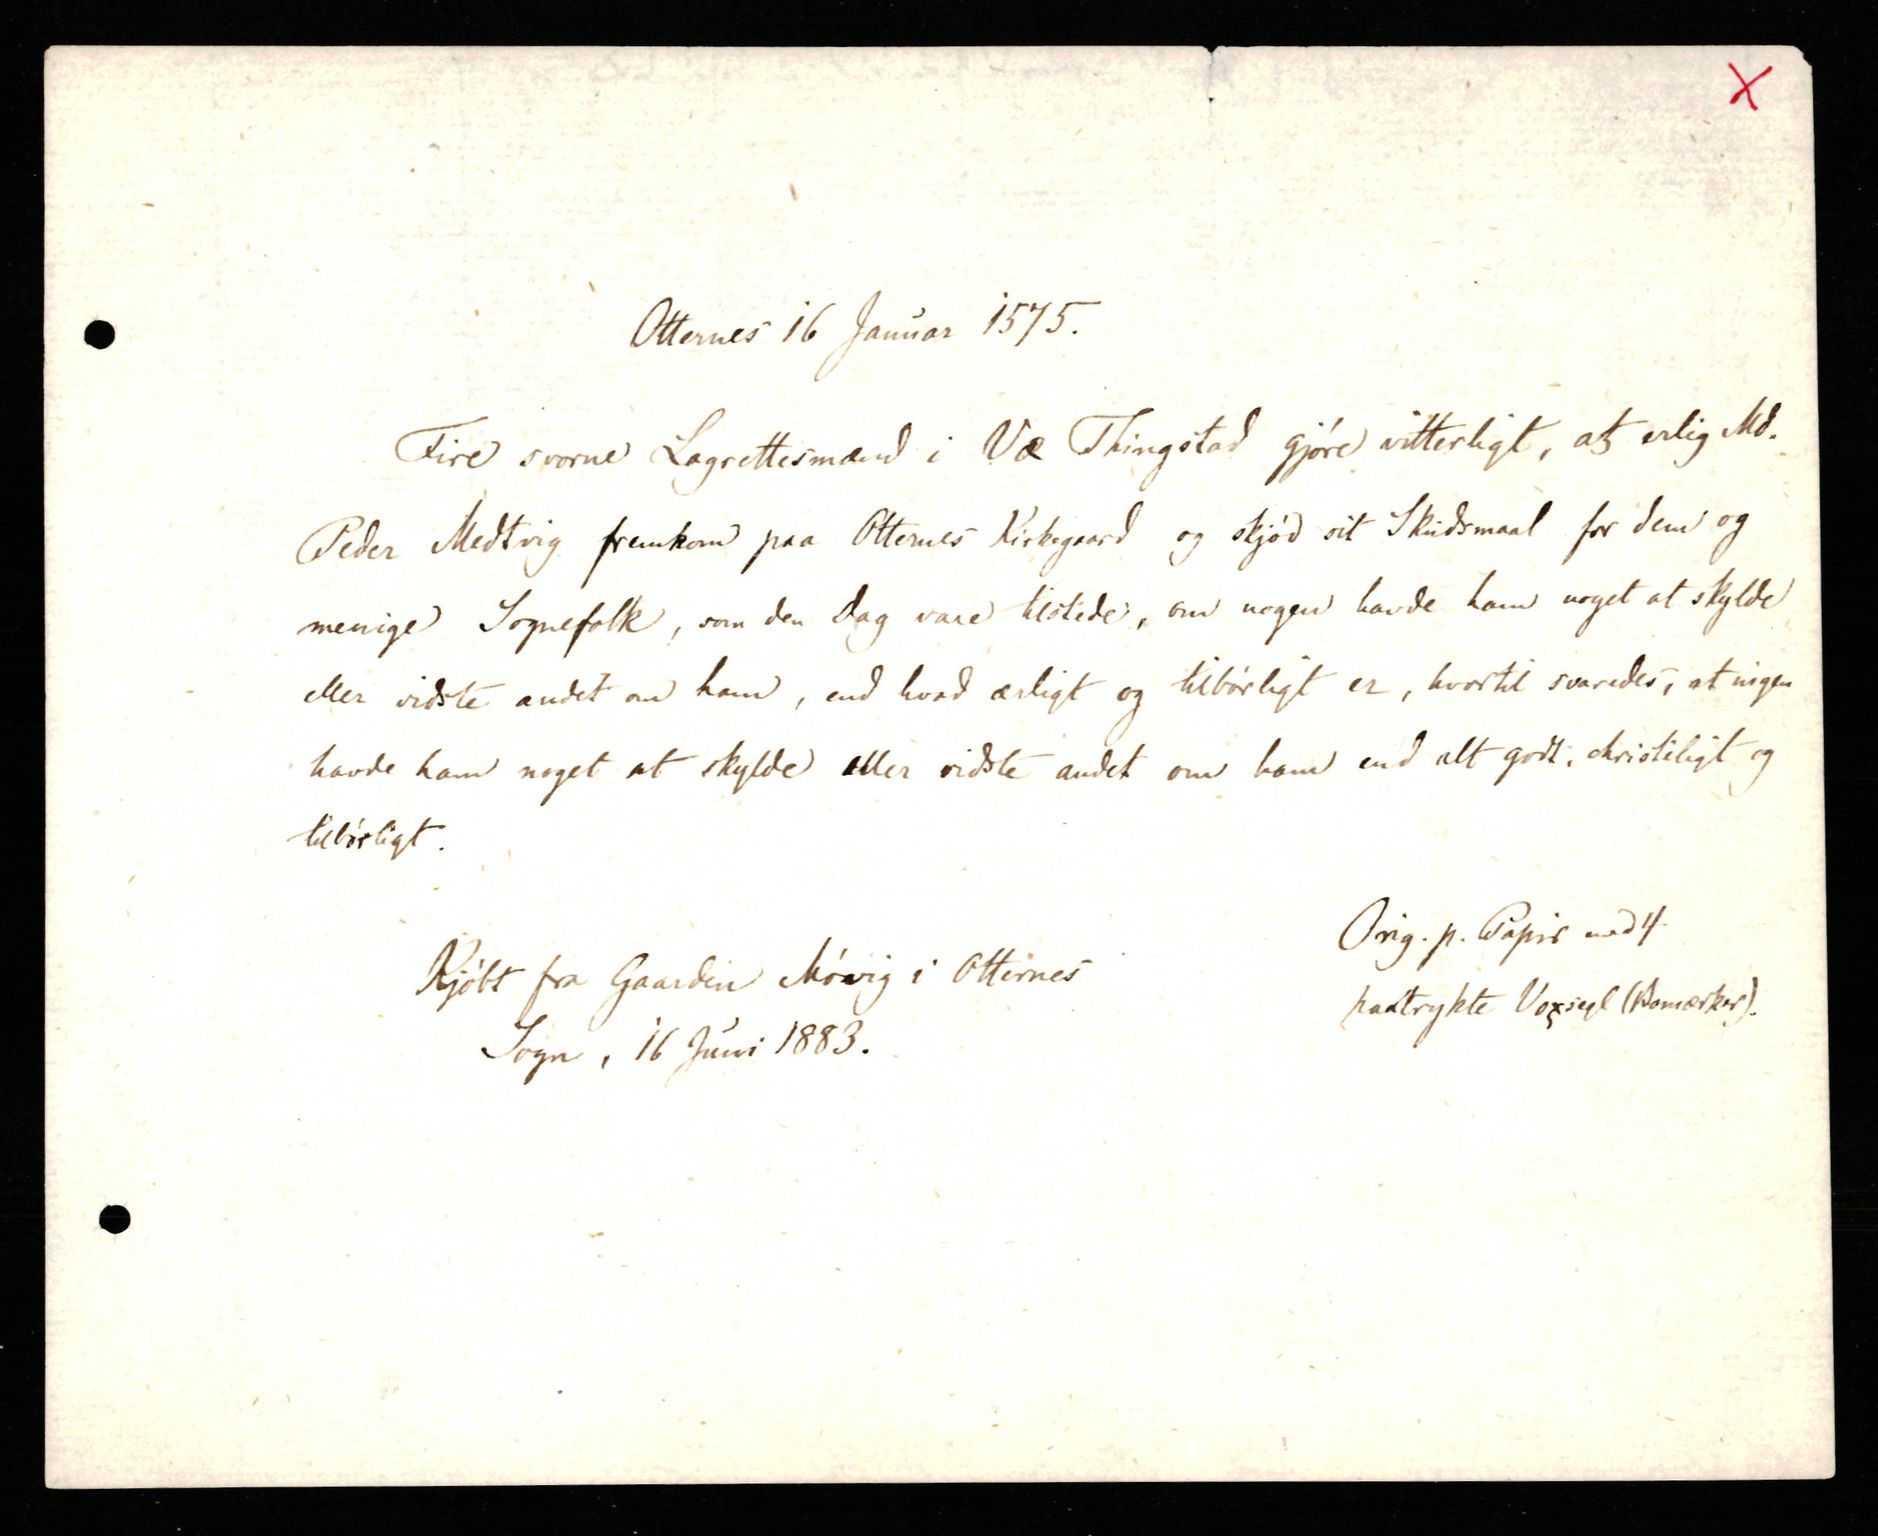 X
Otternes 16 Januar 1575.
Fire svorne Lagrettesmænd i Væ Thingstad gjóre vitterligt, at erlig Md.
Peder Medtvig fremkom paa Otternes Kirkegaard og skjód sit Skudsmaal for dem og
menige Sognefolk, som den Dag vare tilstede, om nogen havde ham noget at skylde
eller vidste andet om ham, end hvad ærligt og tilbórligt er, hvortil svaredes, at ingen
havde ham noget at skylde eller vidste andet om ham end alt godt, christeligt og
tilbórligt.
Orig. p. Papir med 4
paatrykte Voxsegl (Bomærker).
Kjóbt fra Gaarden Móvig i Otternes
Sogn, 16 Juni 1883.